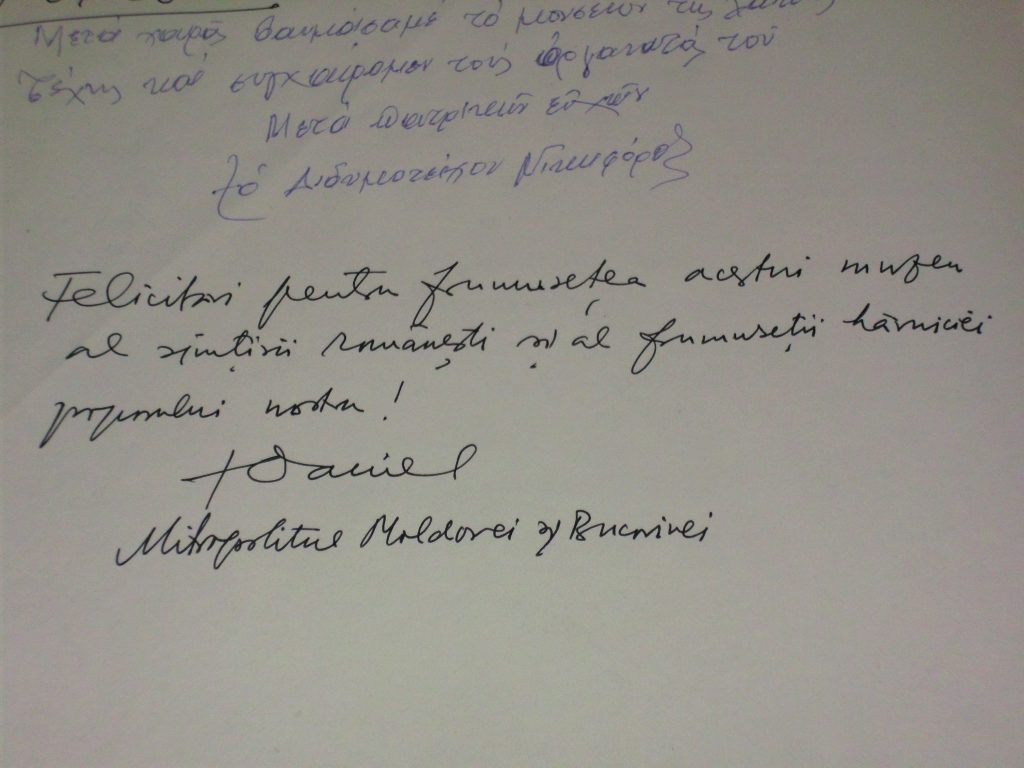 Μετά χαράς θαυμάσαμε τό μουσείον τῆς
Τέχνης καί συγχαίρομεν τούς ὀργανωτάς τοῦ
Μετά πατρικῶν εὐχῶν
+ὁ Διδυμοτείχου Νικηφόρος
Felicitări pentru frumusețea acestui muzeu
al simțirii românești și al frumuseții hărniciei
poporului nostru!
+Daniel
Mitropolitul Moldovei și Bucovinei